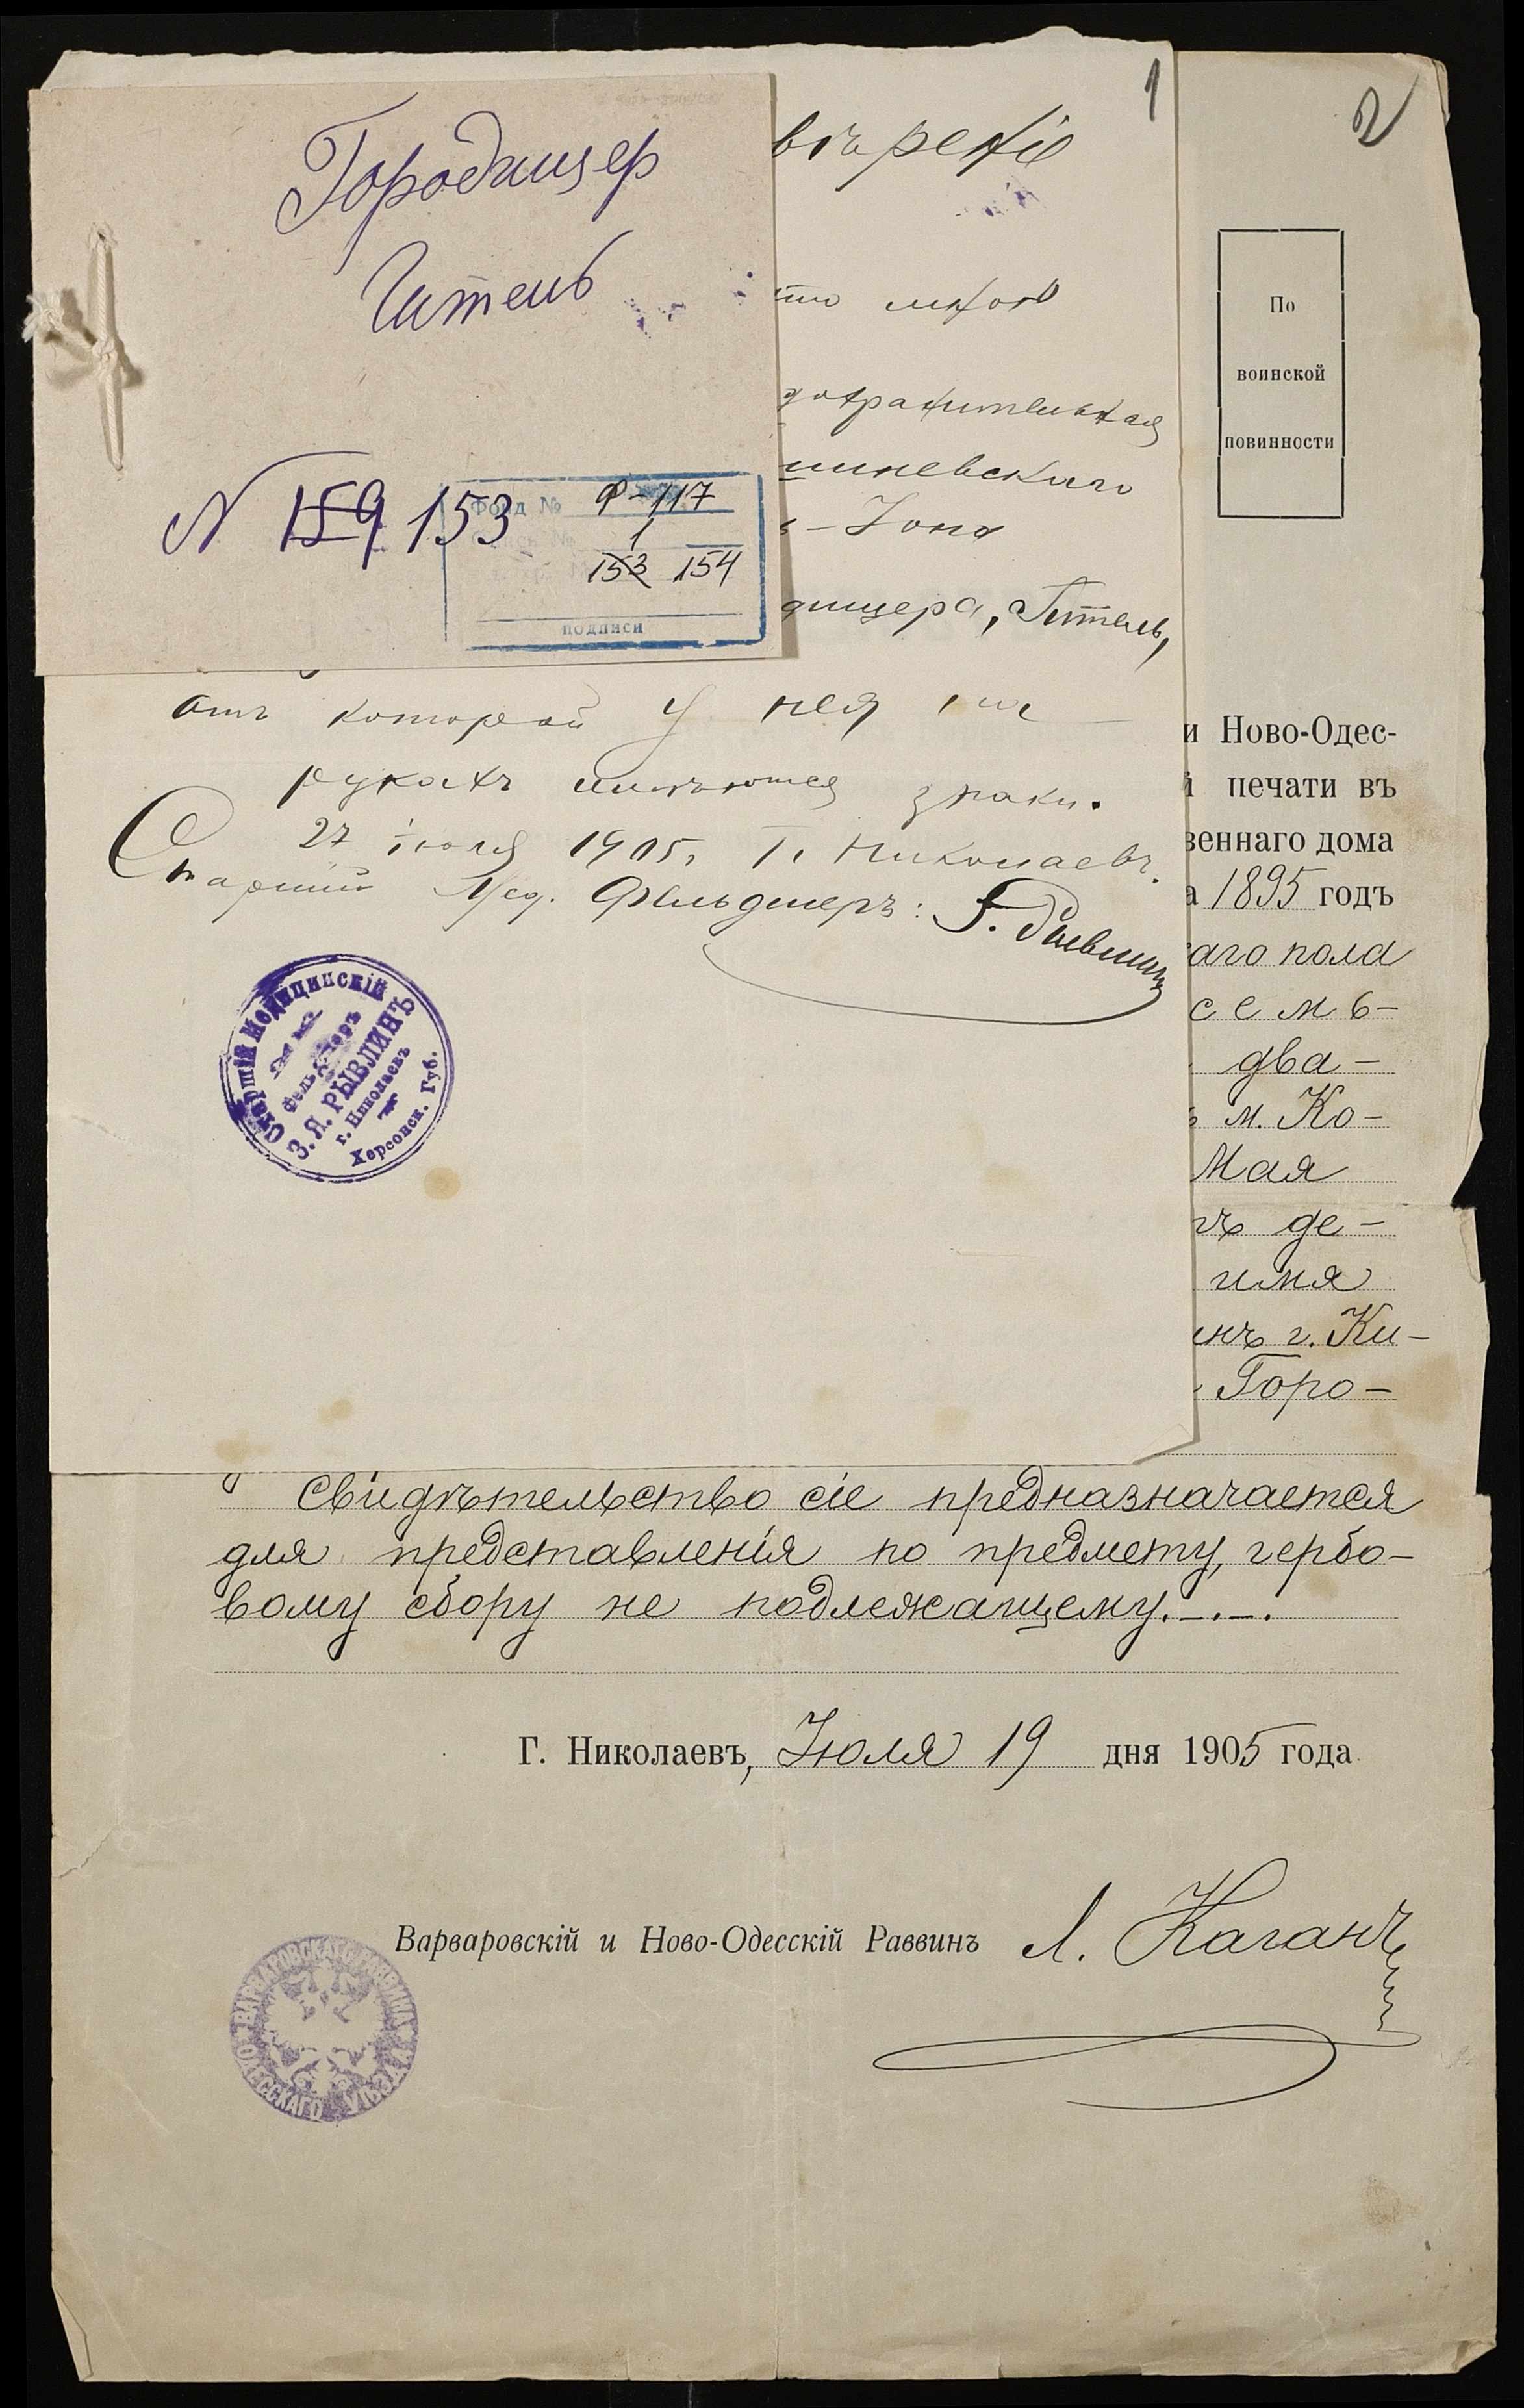 Городищер
Гитель
N 159 153
Фонд № Ф-117
1
153 154
подписи
1
вѣреніе
что мною
дохранительная
шиневскаго
Іона
дищера, Гитель,
отъ которой у нея на
рукахъ имѣются знаки.
27 іюля 1905, г. Николаевъ.
Старшій Мед. Фельдшеръ: З. Рывлинъ
Старшій Медицинскій
Фельдшеръ
З. Я. РЫВЛИНЪ
г. Николаевъ
Херсонск. Губ.
2
По
воинской
повинности
и Ново-Одес-
й печати въ
веннаго дома
а 1895 годъ
аго пола
семь-
два-
м. Ко-
Мая
де-
имя
инъ г. Ки-
Горо-
Свидѣтельство сіе предназначается
для представленія по предмету, гербо-
вому сбору не подлежащему.-.-.
Г. Николаевъ, Іюля 19 дня 1905 года
Варваровскій и Ново-Одесскій Раввинъ Л. Каганъ
ВАРВАРОВСКАГО РАВВИНА ОДЕССКАГО УѢЗДА